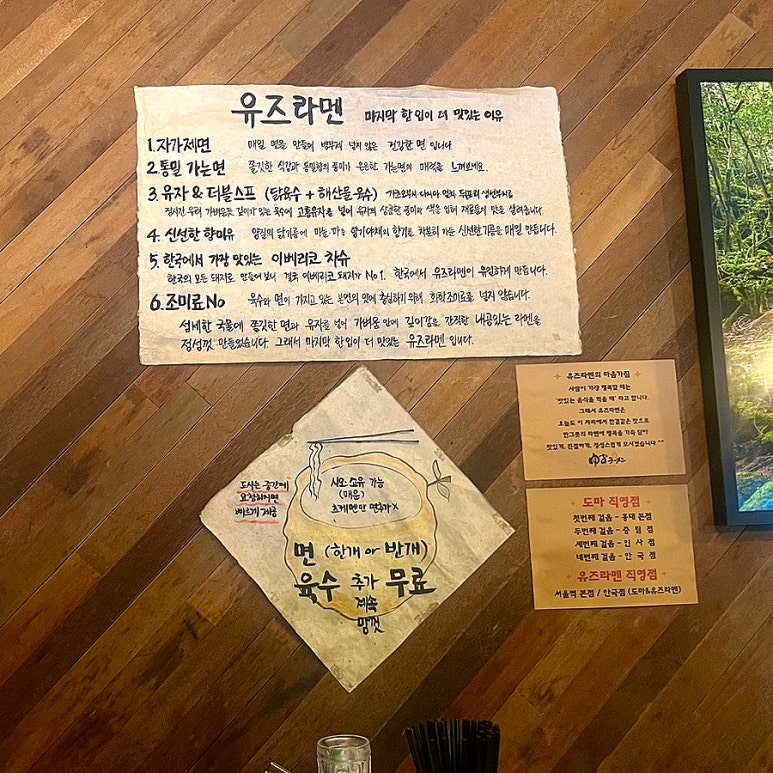 유즈라멘 마지막 한입이 더 맛있는 이유
1. 자가제면 매일 면을 만들어 방부제 넣지 않은 건강한 면 입니다
2. 통밀 가는면 쫄깃한 식감과 통밀향의 풍미가 은은한 가는면의 매력을 느껴보세요.
3. 유자 & 더블스프 (닭육수 + 해산물 육수)
넣어 유자의 상큼한 풍미와
4. 신선한 향미유 양질의 닭기름에 마늘, 파 등 향기야채의 향기를 신선한기름을 매일 만듭니다.
5. 한국에서 가장 맛있는 이베리코 차슈
한국의 모든 돼지로 만들어 보니 결국 이베리코 돼지가 No1. 한국에서 유즈라멘이 유일하게 만듭니다.
6. 조미료 No 육수와 면이 가지고 있는 본연의 맛에 충실하기 위해 화학조미료를 넣지 않습니다.
섬세한 국물에 쫄깃한 면과 유자를 넣어 가벼움 안에 깊이감을 간직한 내공있는 라멘을
정성껏 만들었습니다. 그래서 마지막 한입이 더 맛있는 유즈라멘 입니다.
유즈라멘의 마음가짐
사람이 가장 행복할 때는
'맛있는 음식을 먹을 때' 라고 합니다.
그래서 유즈라멘은
오늘도 이 자리에서 한결같은 맛으로
한그릇의 라멘에 행복을 가득 담아
맛있게, 친절하게, 정성스럽게 모시겠습니다 ^^
드시는 중간에
요청하시면
빠르게 제공
시오 소유 가능
(매운)
츠케멘만 면추가 X
면 (한개 or 반개)
육수 추가 무료
계속
맘껏
도마 직영점
첫번째 걸음 - 홍대 본점
두번째 걸음 - 중림점
세번째 걸음 - 인사점
네번째 걸음 - 안국점
유즈라멘 직영점
서울역 본점 / 안국점 (도마&유즈라멘)